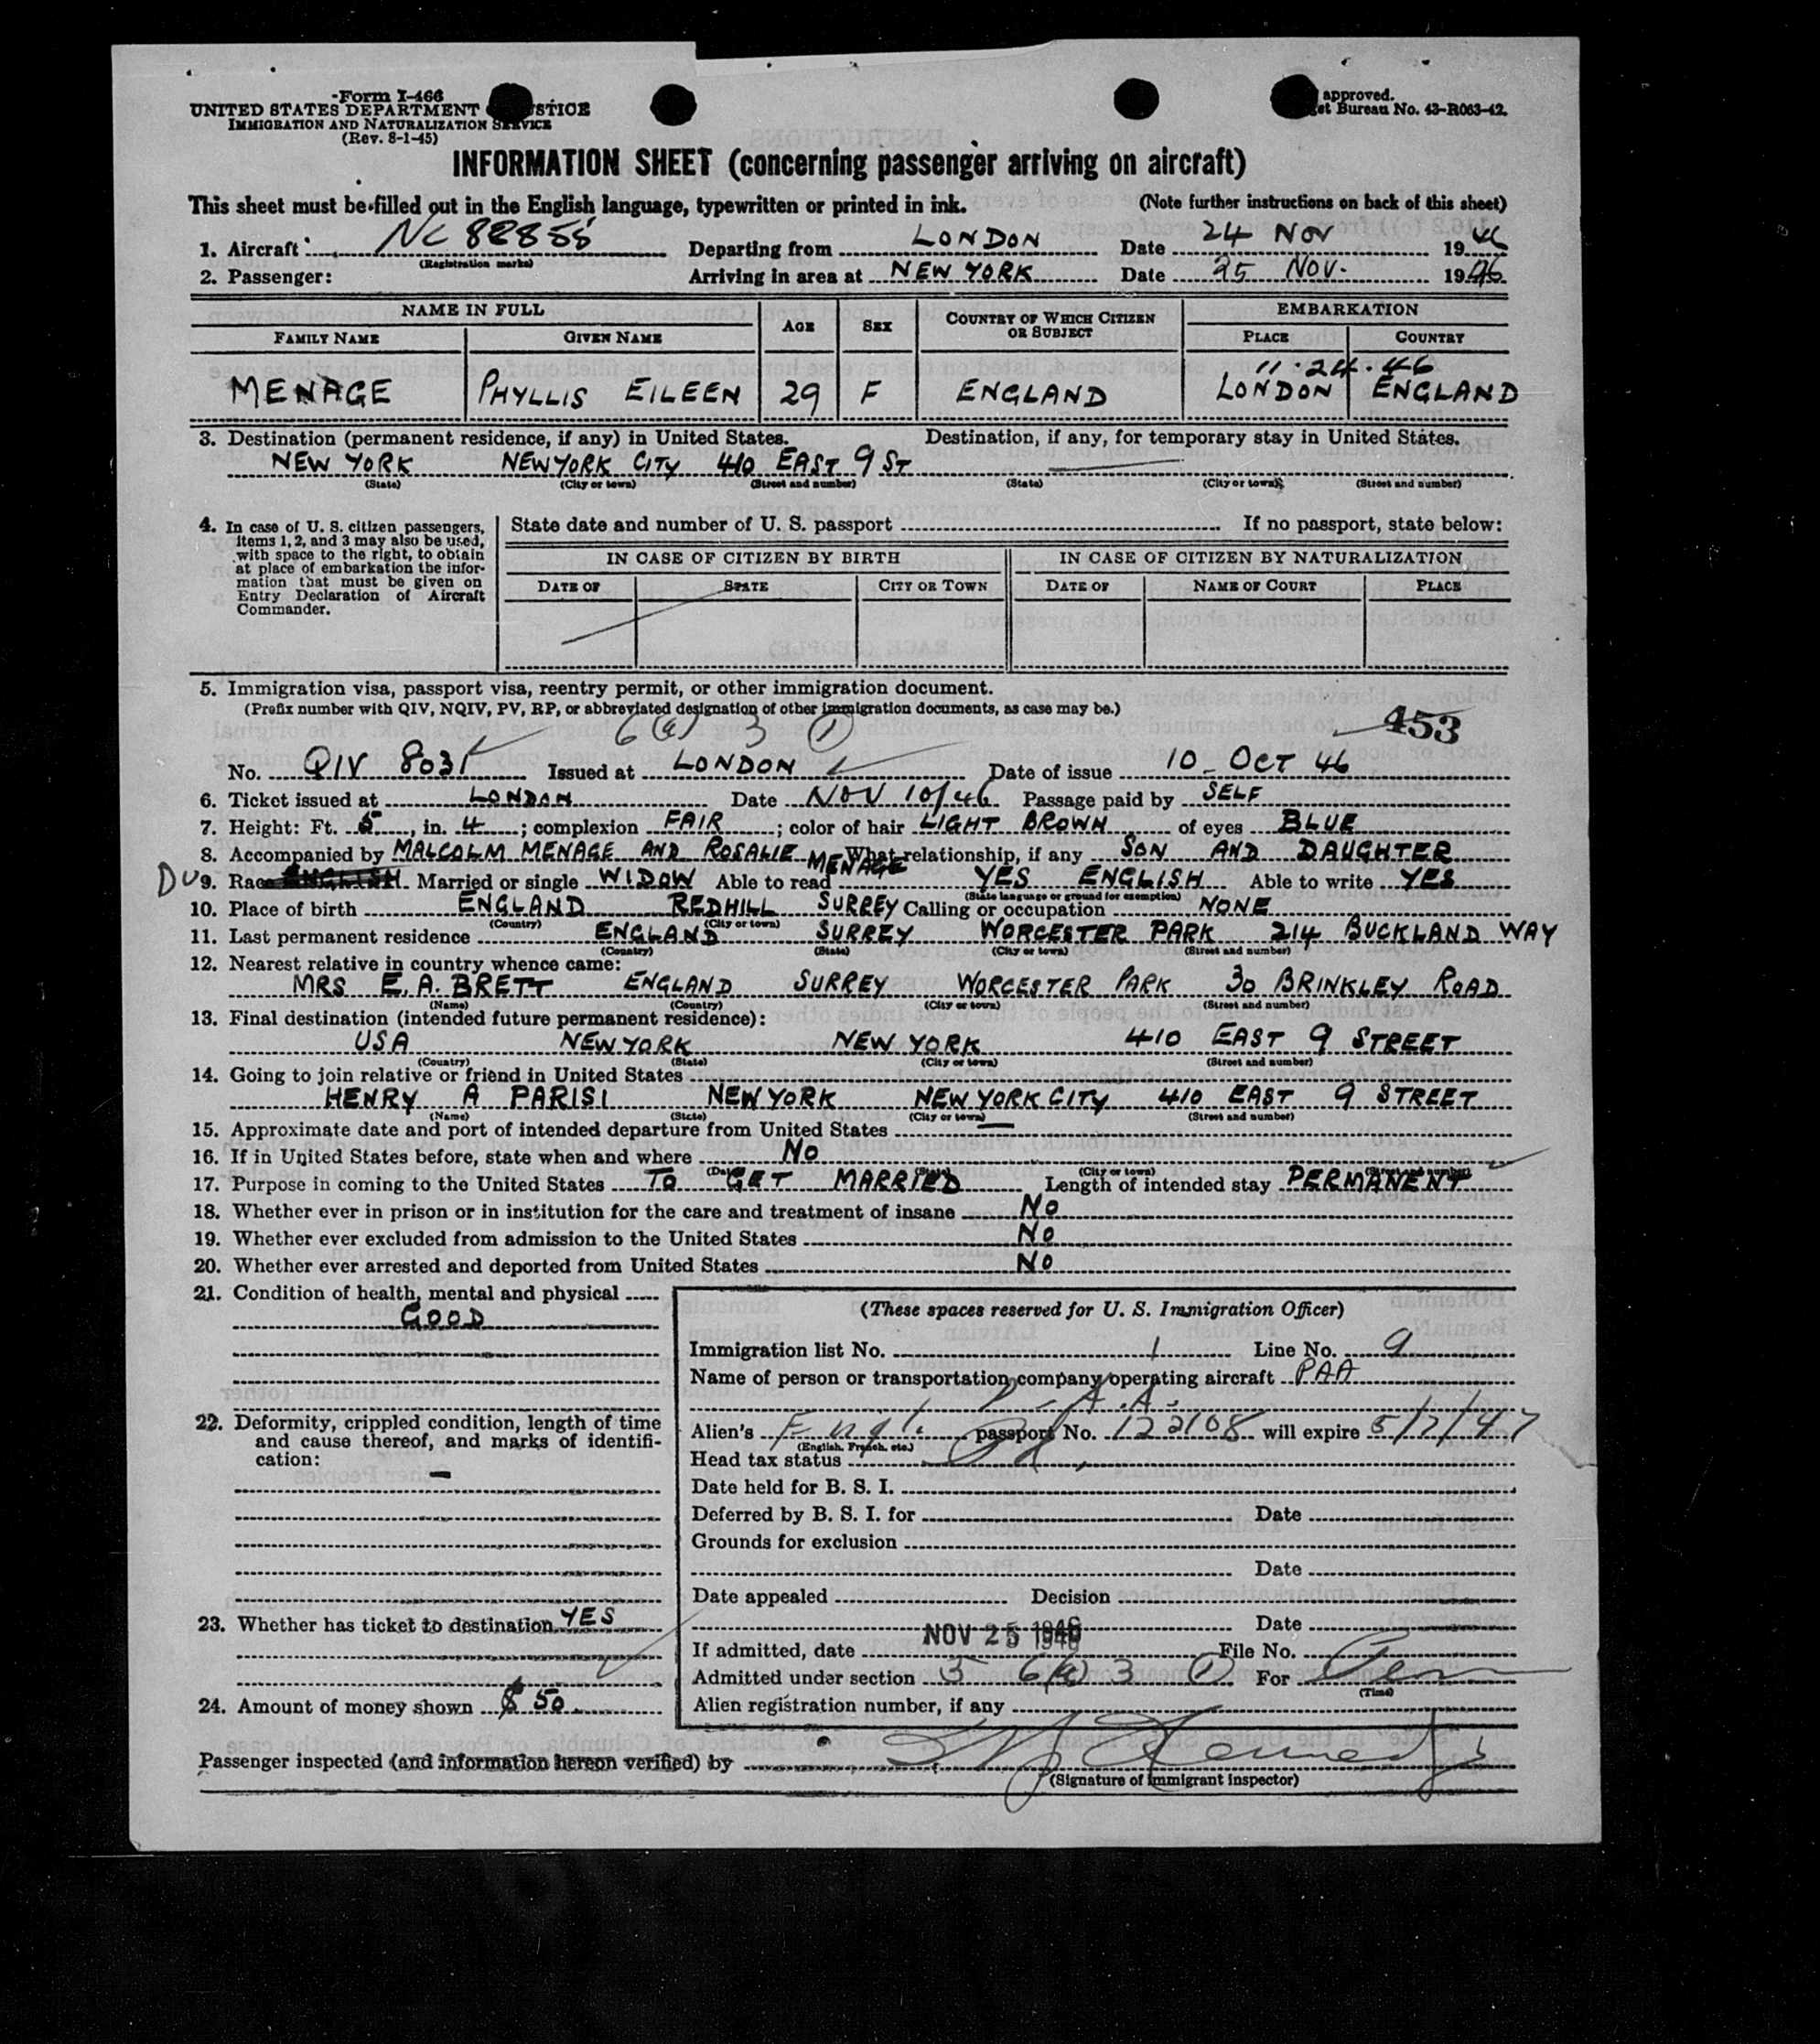 Form I-466
UNITED STATES DEPARTMENT STICE
IMMIGRATION AND NATURALIZATION SERVICE
(Rev. 8-1-45)
approved.
et Bureau No. 43-R063-42.
INFORMATION SHEET (concerning passenger arriving on aircraft)
This sheet must be filled out in the English language, typewritten or printed in ink. (Note further instructions on back of this sheet)
1. Aircraft NC 88855 Departing from LONDON Date 24 NOV 1946
(Registration marks)
2. Passenger: Arriving in area at NEW YORK Date 25 NOV. 1946
NAME IN FULL AGE SEX COUNTRY OF WHICH CITIZEN OR SUBJECT EMBARKATION
FAMILY NAME GIVEN NAME PLACE COUNTRY
11.24.46
MENAGE PHYLLIS EILEEN 29 F ENGLAND LONDON ENGLAND
3. Destination (permanent residence, if any) in United States. Destination, if any, for temporary stay in United States.
NEW YORK NEW YORK CITY 410 EAST 9 ST
(State) (City or town) (Street and number) (State) (City or town) (Street and number)
4. In case of U. S. citizen passengers, items 1, 2, and 3 may also be used, with space to the right, to obtain at place of embarkation the information that must be given on Entry Declaration of Aircraft Commander.
State date and number of U. S. passport If no passport, state below:
IN CASE OF CITIZEN BY BIRTH IN CASE OF CITIZEN BY NATURALIZATION
DATE OF STATE CITY OR TOWN DATE OF NAME OF COURT PLACE
5. Immigration visa, passport visa, reentry permit, or other immigration document.
(Prefix number with QIV, NQIV, PV, RP, or abbreviated designation of other immigration documents, as case may be.)
6(a) 3 (1) 453
No. QIV 8031 Issued at LONDON Date of issue 10 - OCT 46
6. Ticket issued at LONDON Date NOV 10/46 Passage paid by SELF
7. Height: Ft. 5, in. 4; complexion FAIR; color of hair LIGHT BROWN of eyes BLUE
8. Accompanied by MALCOLM MENAGE AND ROSALIE MENAGE What relationship, if any SON AND DAUGHTER
DU 9. Race ENGLISH Married or single WIDOW Able to read YES ENGLISH Able to write YES
(State language or ground for exemption)
10. Place of birth ENGLAND REDHILL SURREY Calling or occupation NONE
(Country) (City or town)
11. Last permanent residence ENGLAND SURREY WORCESTER PARK 214 BUCKLAND WAY
(Country) (State) (City or town) (Street and number)
12. Nearest relative in country whence came:
MRS E. A. BRETT ENGLAND SURREY WORCESTER PARK 30 BRINKLEY ROAD
(Name) (Country) (City or town) (Street and number)
13. Final destination (intended future permanent residence):
USA NEW YORK NEW YORK 410 EAST 9 STREET
(Country) (State) (City or town) (Street and number)
14. Going to join relative or friend in United States
HENRY A PARISI NEW YORK NEW YORK CITY 410 EAST 9 STREET
(Name) (State) (City or town) (Street and number)
15. Approximate date and port of intended departure from United States —
16. If in United States before, state when and where No
(Date) (State) (City or town) (Street and number)
17. Purpose in coming to the United States TO GET MARRIED Length of intended stay PERMANENT
18. Whether ever in prison or in institution for the care and treatment of insane No
19. Whether ever excluded from admission to the United States No
20. Whether ever arrested and deported from United States No
21. Condition of health, mental and physical
GOOD
22. Deformity, crippled condition, length of time and cause thereof, and marks of identification:
—
23. Whether has ticket to destination YES
24. Amount of money shown $ 50
(These spaces reserved for U. S. Immigration Officer)
Immigration list No. 1 Line No. 9
Name of person or transportation company operating aircraft PAA
P.A.A.
Alien's Engl. passport No. 122108 will expire 5/7/47
(English, French, etc.)
Head tax status Pd.
Date held for B. S. I.
Deferred by B. S. I. for Date
Grounds for exclusion
Date
Date appealed Decision
Date
If admitted, date NOV 25 1946 File No.
Admitted under section 5 6(a) 3 (1) For Perm
(Time)
Alien registration number, if any
Passenger inspected (and information hereon verified) by
(Signature of immigrant inspector)